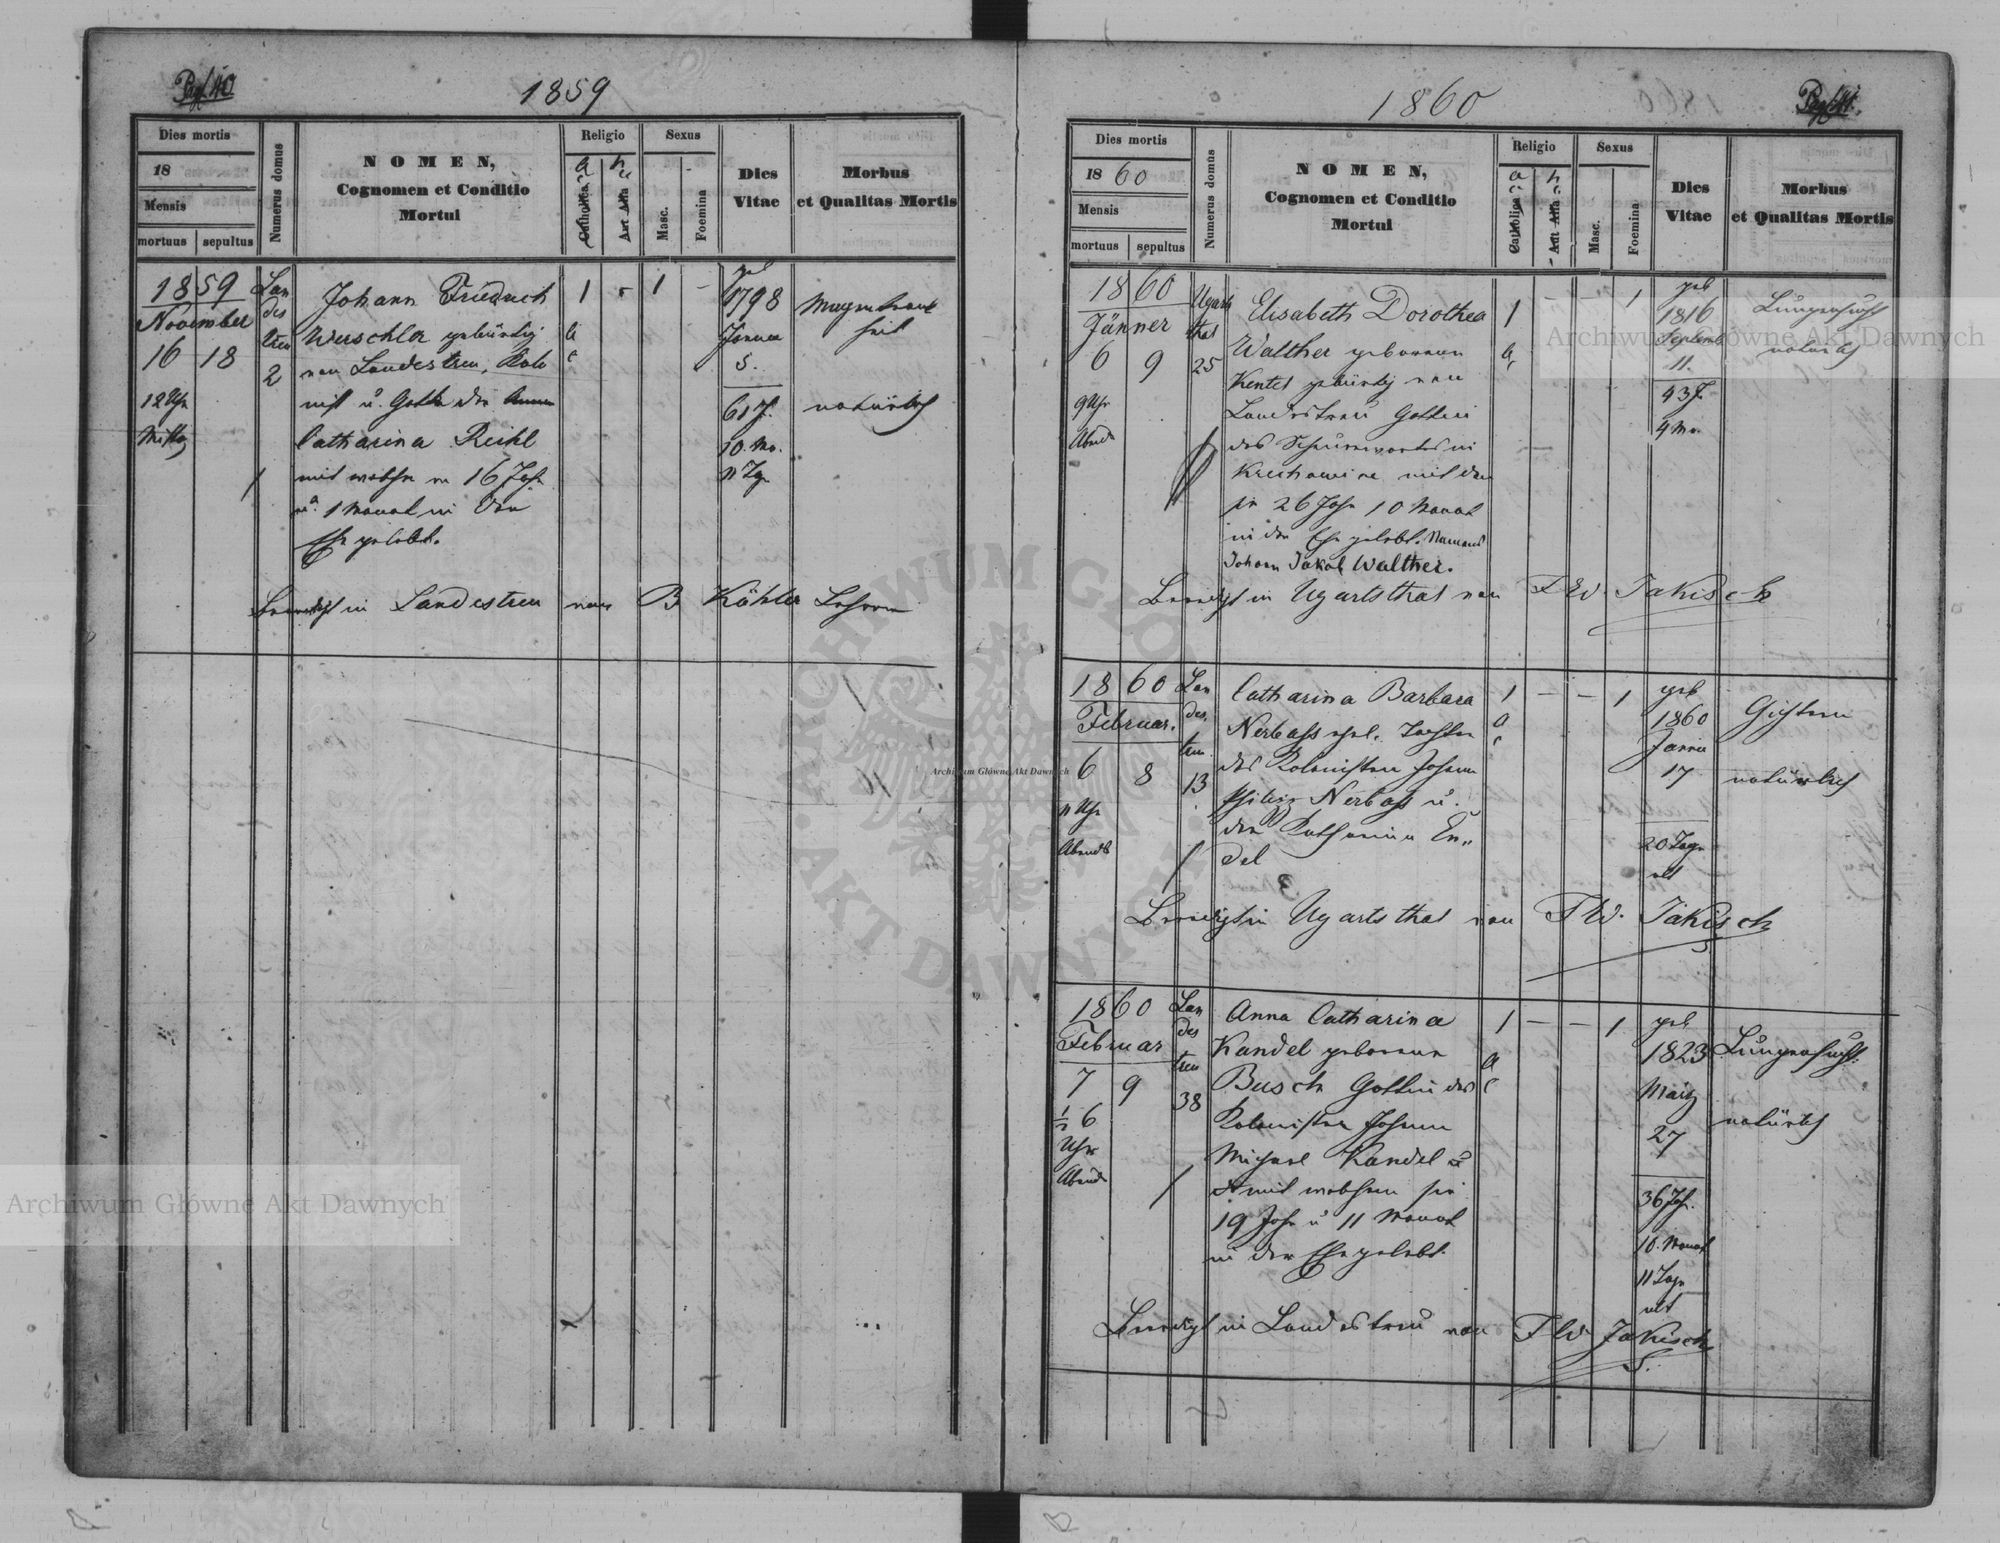 Pag. 40
1859
Dies mortis
18
Mensis
mortuus
sepultus
Numerus domus
NOMEN,
Cognomen et Conditio
Mortui
Religio
a. c.
h. c.
Catholica
Aut Alia
Sexus
Masc.
Foemina
Dies
Vitae
Morbus
et Qualitas Mortis
1859
November
16 18
12 Uhr
Mittag
Lan
des
treu
2
Johann Friedrich
Weischla gebürtig
von Landestreu, Kolo
nist u. Gatte der
Catharina Reihl
mit welcher er 16 Jahr
u. 1 Monat in der
Ehe gelebt.
1 - 1 -
a
c
geb
1798
Januar
5.
61 J.
10. Mo.
11 Tge
Magenkrank
heit
natürlich
Beerdigt in Landestreu von B Köhler Lehrer
1860
Pag. 41.
Dies mortis
1860
Mensis
mortuus
sepultus
Numerus domus
NOMEN,
Cognomen et Conditio
Mortui
Religio
a. c.
h. c.
Catholica
Aut Alia
Sexus
Masc.
Foemina
Dies
Vitae
Morbus
et Qualitas Mortis
1860
Jänner
6 9
9 Uhr
Abends
Ugarts
thal
25
Elisabeth Dorothea
Walther geborene
Kentel gebürtig von
Landestreu Gattin
des
mit dem
sie 26 Jahr 10 Monat
in der Ehe gelebt. Namens
Johann Jakob Walther.
1 - - 1
a
c
geb
1816
September
11.
43 J.
4 Mo.
Lungensucht
natürlich
Beerdigt in Ugartsthal von F W. Jakisch
1860
Februar.
6 8
11 Uhr
Abends
Lan
des.
treu
13
Catharina Barbara
Nerbass ehel. Tochter
des Kolonisten Johann
Philipp Nerbass u.
der Katharina En"
del
1 - - 1
a
c
geb
1860
Januar
17
20 Tage
alt
Gichtern
natürlich
Beerdigt in Ugartsthal von F W. Jakisch
1860
Februar
7 9
½ 6
Uhr
Abends
Lan
des
treu
38
Anna Catharina
Kandel geborene
Busch Gattin des
Kolonisten Johann
Michael Kandel
mit welchem sie
19 Jahr u 11 Monat
in der Ehe gelebt.
1 - - 1
a
c
geb
1823
März
27
36 Jahr.
10. Monat
11 Tage
alt
Lungensucht.
natürlich
Beerdigt in Landestreu von F W Jakisch
S.
ARCHIWUM GŁÓWNE AKT DAWNYCH
Archiwum Główne Akt Dawnych
Archiwum Główne Akt Dawnych
Archiwum Główne Akt Dawnych